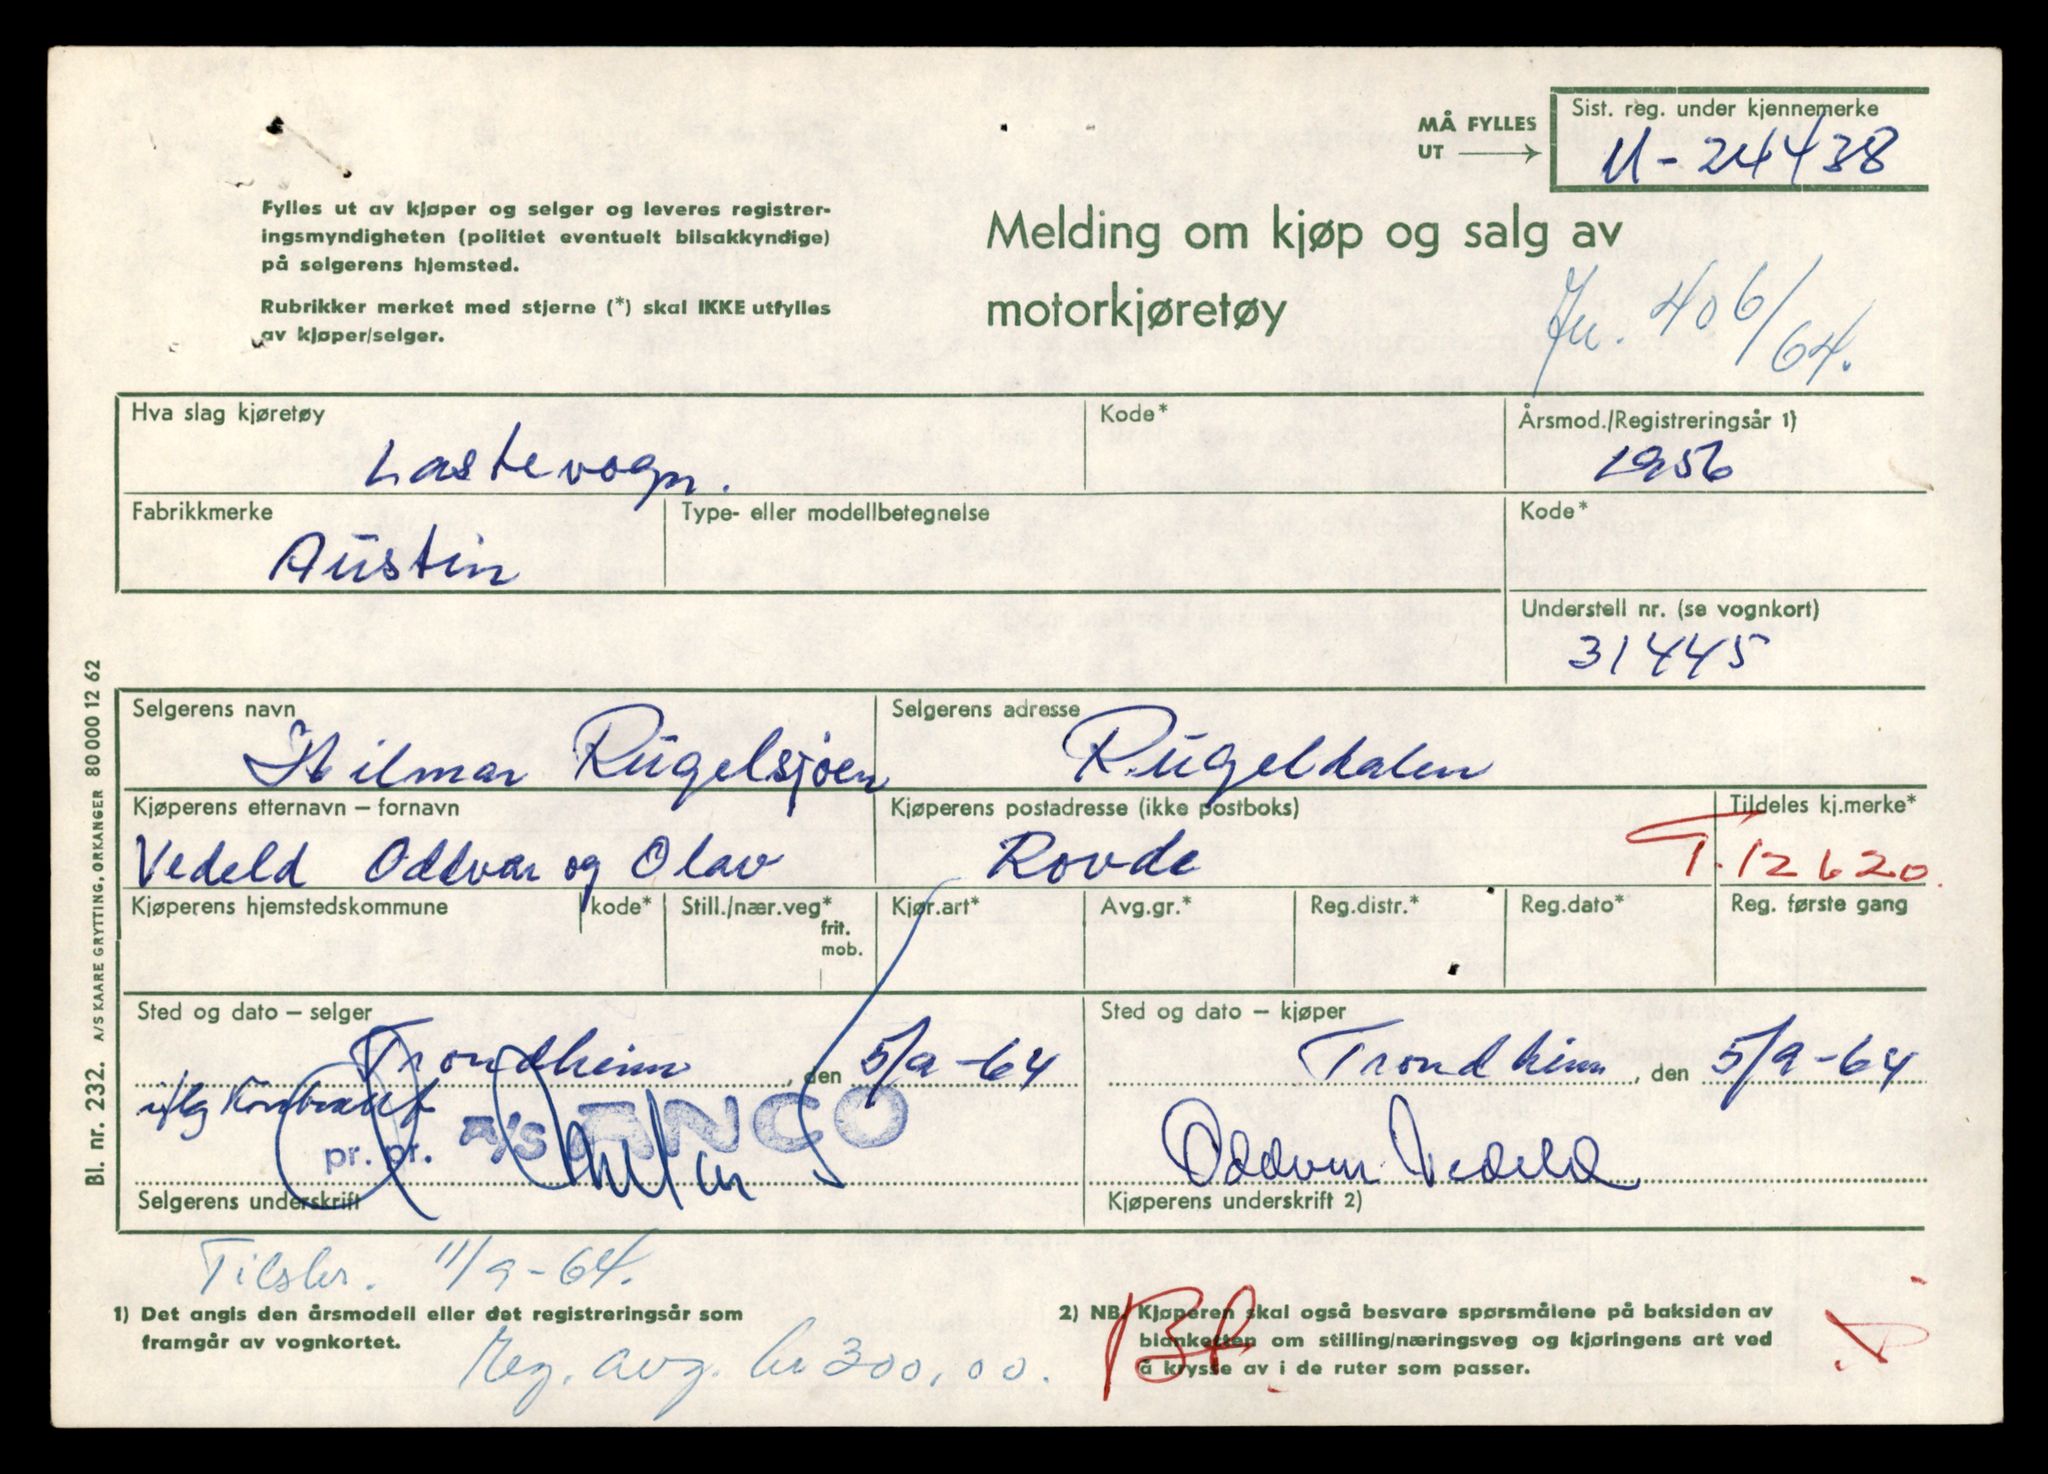 MÅ FYLLES
UT
Sist. reg. under kjennemerke
U-24438
Fylles ut av kjøper og selger og leveres registrer-
ingsmyndigheten (politiet eventuelt bilsakkyndige)
på selgerens hjemsted.
Rubrikker merket med stjerne (*) skal IKKE utfylles
av kjøper/selger.
Melding om kjøp og salg av
motorkjøretøy
Jn. 406/64.
Hva slag kjøretøy
Lastevogn.
Kode*
Årsmod./Registreringsår 1)
1956
Fabrikkmerke
Austin
Type- eller modellbetegnelse
Kode*
Understell nr. (se vognkort)
31445
Selgerens navn
Hilmar Rugelsjøen
Selgerens adresse
Rugeldalen
Kjøperens etternavn – fornavn
Vedeld Oddvar og Olav
Kjøperens postadresse (ikke postboks)
Rovde
Tildeles kj.merke*
T.12620.
Kjøperens hjemstedskommune
kode*
Still./nær.veg*
frit.
mob.
Kjør.art*
Avg.gr.*
Reg.distr.*
Reg.dato*
Reg. første gang
Sted og dato – selger
Trondheim, den 5/9-64
iflg Kontrakt
pr. pr. A/S ANCO
Selgerens underskrift
Sted og dato – kjøper
Trondheim, den 5/9-64
Oddvar Vedeld
Kjøperens underskrift 2)
Tilsler. 11/9-64.
1) Det angis den årsmodell eller det registreringsår som
framgår av vognkortet.
Reg. avg. kr 300,00.
2) NB. Kjøperen skal også besvare spørsmålene på baksiden av
blanketten om stilling/næringsveg og kjøringens art ved
å krysse av i de ruter som passer.
Bl. nr. 232. A/S KAARE GRYTTING, ORKANGER 80 000 12 62